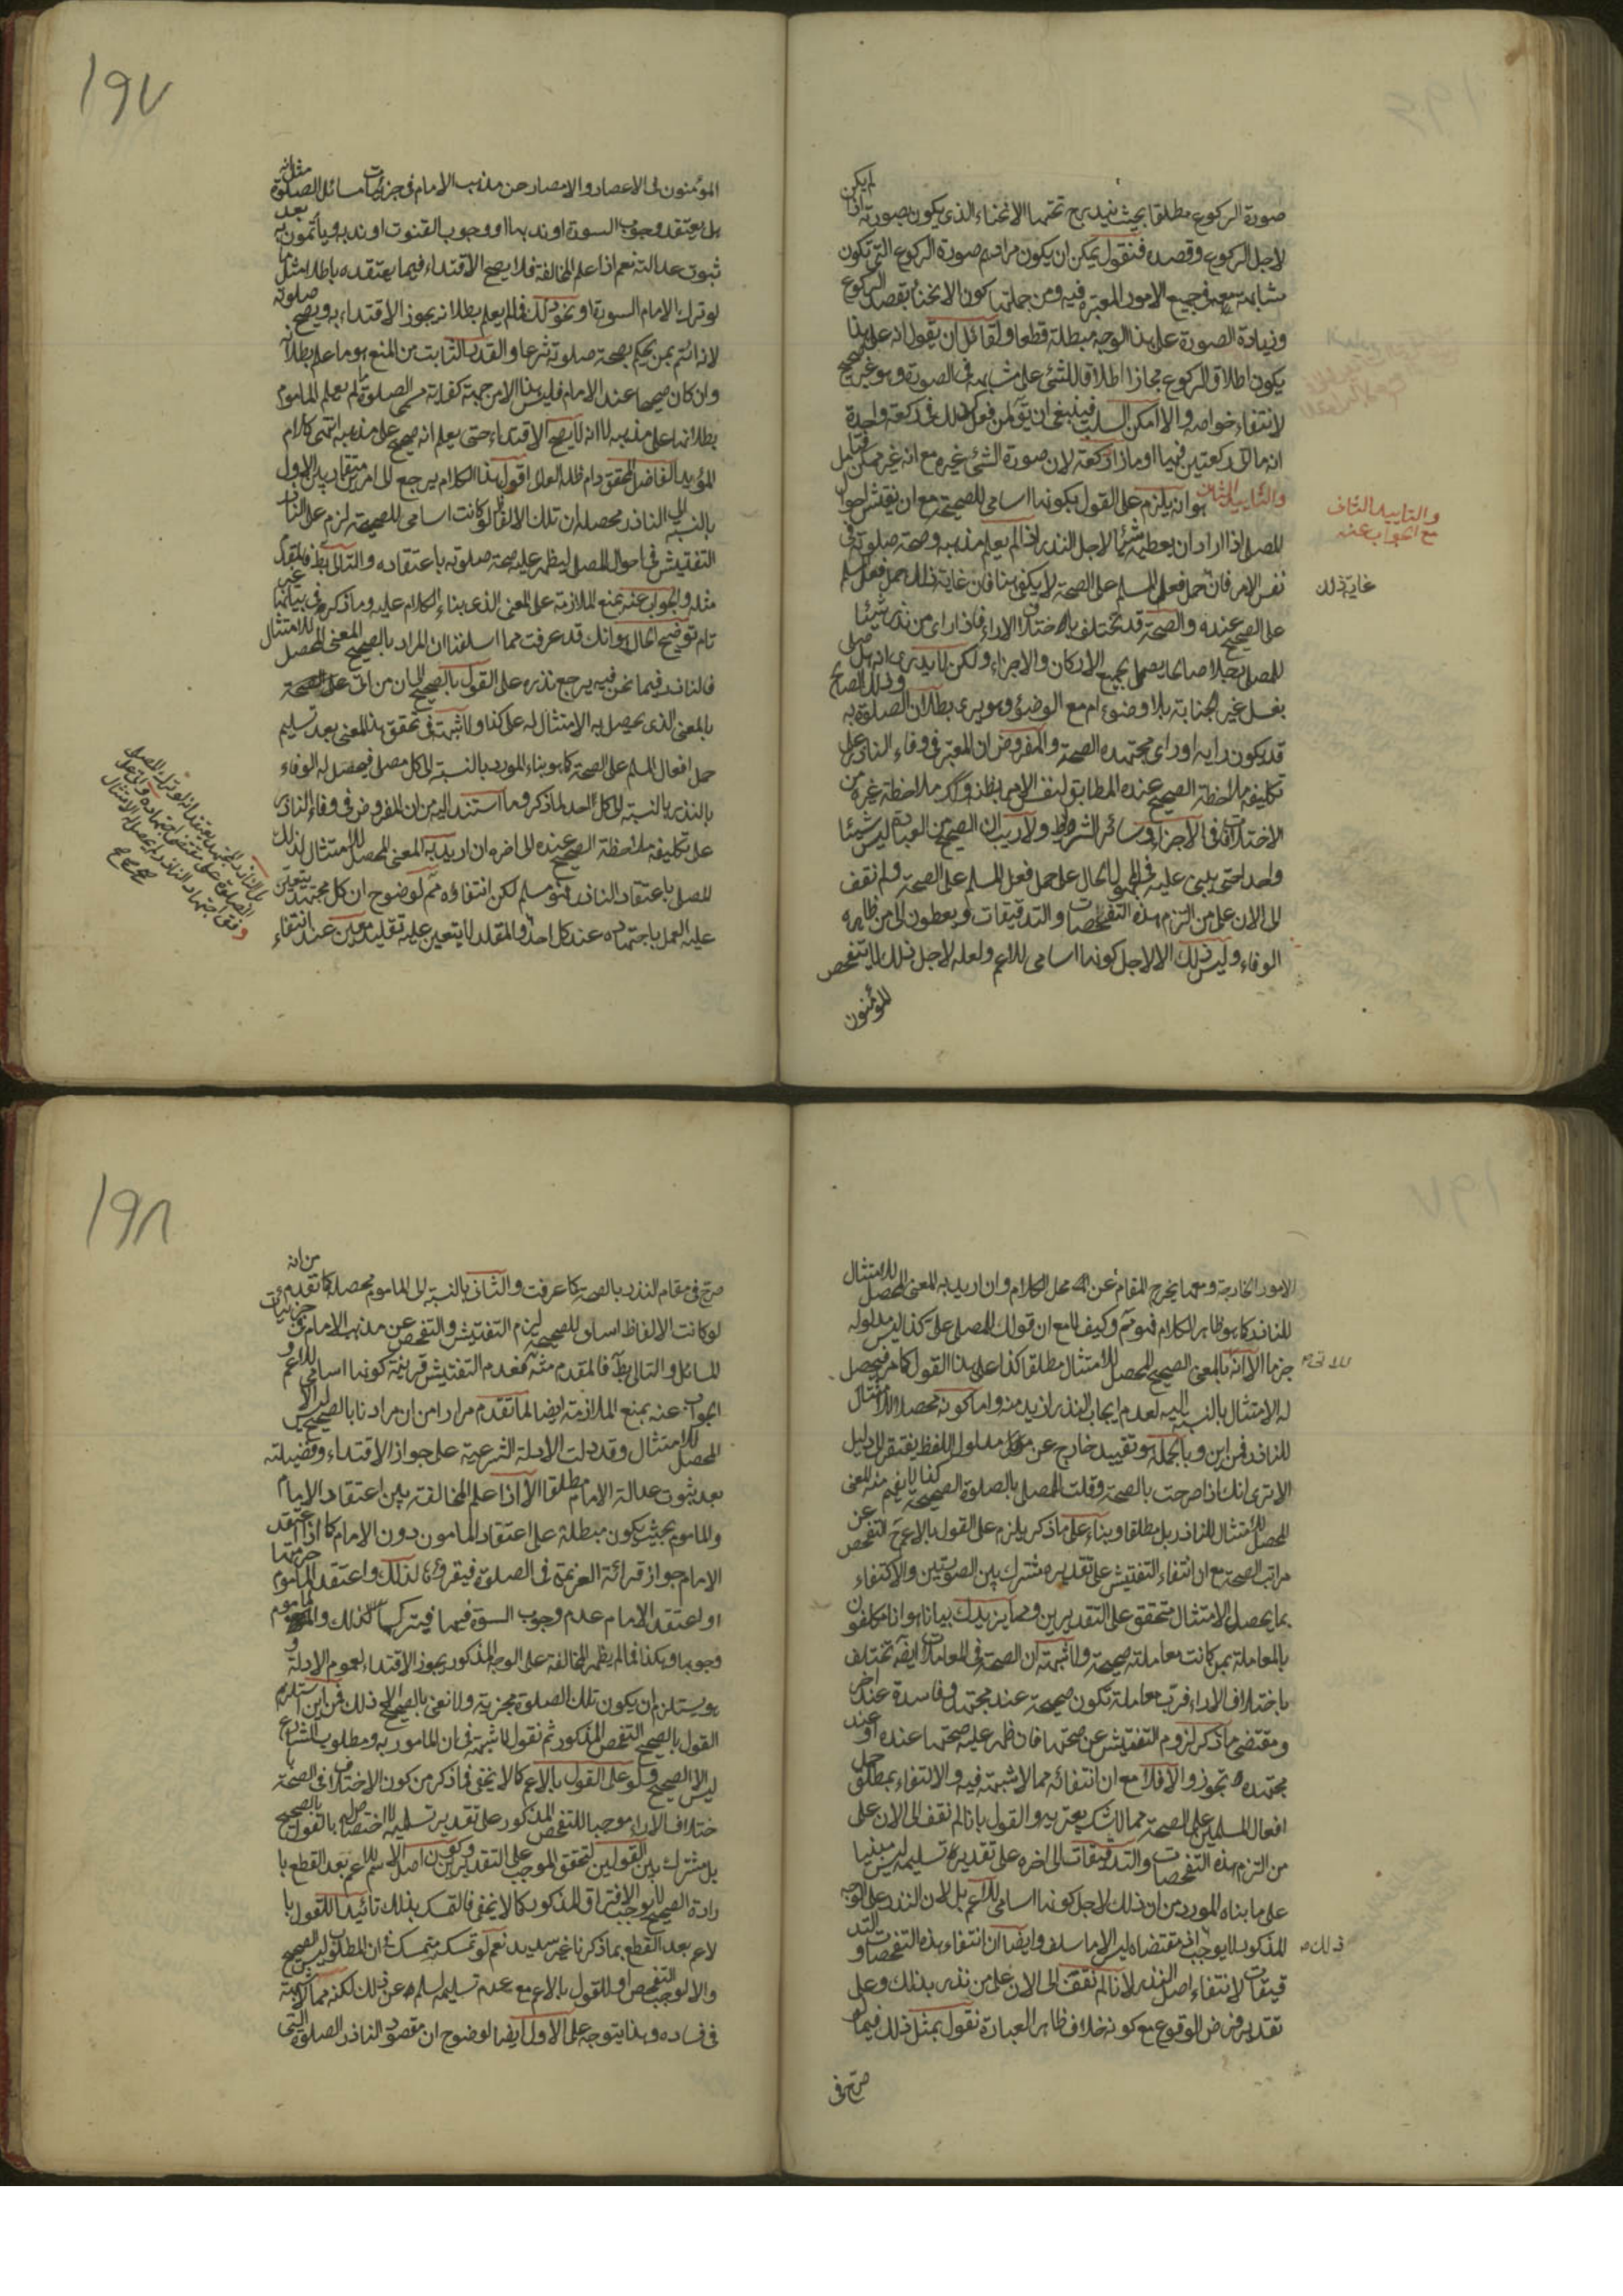 صورة الركوع مطلقا بحيث يندرج تحتها الانحناء الذى يكون بصورته اذا لم يكن
لاجل الركوع وقصده فنقول يمكن ان يكون مرادهم صورة الركوع التى تكون
مشابهة معه فى جميع الامور المعتبرة فيه ومن جملتها كون الانحناء بقصد الركوع
وزيادة الصورة على هذا الوجه مبطلة قطعا ولقائل ان يقول انه على هذا
يكون اطلاق الركوع مجازا اطلاقا للشئ على مشابهه فى الصورة وهو غير صحيح
لانتفاء خواصه والا امكن السلب فينبغى ان يق لمن فعل ذلك فى ركعة واحدة
انه ما اتى ركعتين فيها او ما زاد ركعة لان صورة الشئ غيره مع انه غير ممكن فتامل
والتاييد الثانى هو انه يلزم على القول بكونها اسامى للصحيحة مع ان نفتش احوال
المصلى اذا اراد ان يعطيه شيئا لاجل النذر اذا لم يعلم مذهبه وصحة صلوته فى
نفس الامر فان حمل فعل المسلم على الصحة لا يكفى هنا فان غاية ذلك حمل فعل المسلم
على الصحيح عنده والصحة قد تختلف باختلاف الاراء فاذا راى من نذر شيئا
للمصلى رجلا صالحا يصلى بجميع الاركان والاجزاء ولكن لا يدرى انه هل صلى
بغسل غير الجنابة بلا وضوء ام مع الوضوء وهو يرى بطلان الصلوة به وذلك الصالح
قد يكون رايه او راى مجتهده الصحة والمفروض ان المعتبر فى وفاء النذر على
تكليفه ملاحظة الصحيح عنده المطابق لنفس الامر بظنه وكر ملاحظة غيره من
الاختلافات فى الاجزاء وسائر الشروط ولا ريب ان الصحيح من العبادة ليس شيئا
واحدا حتى يبنى عليه فى المجهول الحال على حمل فعل المسلم على الصحة ولم نقف
الى الان على من التزم هذه التفحصات والتدقيقات ويعطون الى من ظاهره
الوفاء وليس ذلك الا لاجل كونها اسامى للاعم ولعله لاجل ذلك لا يتفحص
المؤمنون
والتاييد الثانى
مع الجواب عنه
غاية ذلك
١٩٧
المؤمنون فى الاعصار والامصار عن مذهب الامام فى جزئيات مسائل الصلوة مثل انه
هل يعتقد وجوب السورة او ندبها او وجوب القنوت او ندبه ويأتمون به بعد
ثبوت عدالته نعم اذا علم المخالفة فلا يصح الاقتداء فيما يعتقده باطلا مثل ما
لو ترك الامام السورة او نحو ذلك فالم يعلم بطلانه يجوز الاقتداء به ويصح صلوته
لانه ائتم بمن يحكم بصحة صلوته شرعا والقدر الثابت من المنع هو ما علم بطلانه
وان كان صحيحا عند الامام فليس هذا الا من جهة كفاية مسمى الصلوة ما لم يعلم الماموم
بطلانها على مذهبه لا انه لا يصح الاقتداء حتى يعلم انه صحيح على مذهبه انتهى كلام
المؤيد الفاضل المحقق دام ظله العالى اقول هذا الكلام يرجع الى امرين متقاربين الاول
بالنسبة الى الناذر محصله ان تلك الالفاظ لو كانت اسامى للصحيحة لزم على الناذر
التفتيش فى احوال المصلى ليظهر عليه صحة صلوته باعتقاده والتالى بط فالمقدم
مثله والجواب عنه بمنع الملازمة على المعنى الذى بناء الكلام عليه وما ذكره فى بيانها غير
تام توضيح الحال هو انك قد عرفت مما اسلفنا ان المراد بالصحيح المعنى المحصل للامتثال
فالناذر فيما نحن فيه يرجع نذره على القول بالصحيح الى ان من اتى على الصحة
بالمعنى الذى يحصل به الامتثال له على كذا ولا شبهة فى تحقق هذا المعنى بعد تسليم
حمل افعال المسلم على الصحة كما هو بناء المورد بالنسبة الى كل مصلى فيحصل له الوفاء
بالنذر بالنسبة الى كل احد لما ذكر وما استند اليه من ان المفروض فى وفاء الناذر
على تكليفه ملاحظة الصحيح عنده الى اخره ان اريد به المعنى المحصل للامتثال لذلك
المصلى باعتقاد الناذر فهو مسلم لكن انتفاؤه ثم لوضوح ان كل مجتهد يتعين
عليه العمل باجتهاده عند كل احد والمقلد لا يتعين عليه تقليد معين عند انتفاء
الامور الخارجة ومعها يخرج المقام عن محل الكلام وان اريد به المعنى المحصل للامتثال
للناذر كما هو ظاهر الكلام فهو ثم وكيف لا مع ان قولك للمصلى على كذا ليس مدلوله
جزما الا انه بالمعنى الصحيح المحصل للامتثال مطلقا كذا على هذا القول كما مر فيحصل
له الامتثال بالنسبة اليه لعدم ايجاب النذر ازيد منه واما كونه محصلا للامتثال
للناذر فمن اين وبالجملة هو تقييد خارج عن مدلول اللفظ يفتقر الى دليل
الا ترى انك اذا صرحت بالصحة وقلت المصلى بالصلوة الصحيحة كذا لا يفهم منه المعنى
المحصل للامتثال للناذر بل مطلقا وبناء على ما ذكر يلزم على القول بالاعم التفحص عن
مراتب الصحة مع ان انتفاء التفتيش على تقديره مشترك بين الصورتين والاكتفاء
بما يحصل الامتثال متحقق على التقديرين ومما يزيدك بيانا هو انا مكلفون
بالمعاملة بمن كانت معاملته صحيحة ولا شبهة ان الصحة فى المعاملات ايضه تختلف
باختلاف الاراء فرب معاملة تكون صحيحة عند مجتهد وفاسدة عند اخر
ومقتضى ما ذكر لزوم التفتيش عن صحتها فان ظهر عليه صحتها عنده او عند
مجتهده تجوز والا فلا مع ان انتفائه مما لا شبهة فيه والاكتفاء بمطلق حمل
افعال المسلمين على الصحة مما لا شك يعتريه والقول بانا لم نقف الى الان على
من التزم هذه التفحصات والتدقيقات الى اخره على تقديره تسليمه ليس مبنيا
على ما بناه المورد من ان ذلك لاجل كونها اسامى للاعم بل لان النذر على الوجه
المذكور لا يوجب فى مقتضاه ليس الا ما سلف وايضا ان انتفاء هذه التفحصات والتد
قيقات لانتفاء اصل النذر لانا لم نقف الى الان على من نذر بذلك وعلى
تقدير فرض الوقوع مع كونه خلاف ظاهر العبارة نقول بمثل ذلك فيما لو
صرح فى
ذلك
١٩٨
صرح فى مقام النذر بالصحة كما عرفت والثانى بالنسبة الى الماموم محصله كما تقدم من انه
لو كانت الالفاظ اسامى للصحيحة ليلزم التفتيش والتفحص عن مذهب الامام فى جزئيات
المسائل والتالى بط فالمقدم مثله فعدم التفتيش قرينة كونها اسامى للاعم و
الجواب عنه بمنع الملازمة ايضا لما تقدم مرارا من ان مرادنا بالصحيح ليس الا
المحصل للامتثال وقد دلت الادلة الشرعية على جواز الاقتداء وفضيلته
بعد ثبوت عدالة الامام مطلقا الا اذا علم المخالفة بين اعتقاد الامام
والماموم بحيث يكون مبطلة على اعتقاد المامون دون الامام كما اذا اعتقد
الامام جواز قرائة العزيمة فى الصلوة فيقرؤها لذلك واعتقد الماموم حرمتها
او اعتقد الامام عدم وجوب السورة فيها فيتركها كذلك والماموم
وجوبها وهكذا فما لم يظهر المخالفة على الوجه المذكور يجوز الاقتداء لعموم الادلة و
هو يستلزم ان يكون تلك الصلوة مجزية ولا نعنى بالصحيح الا ذلك فمن اين استلزم
القول بالصحيح التفحص المذكور ثم نقول لا شبهة فى ان المامور به ومطلوب الشارع
ليس الا الصحيح ولو على القول بالاعم كما لا يخفى فما ذكر من كون الاختلاف فى الصحة با
ختلاف الاراء موجبا للتفحص المذكور على تقدير تسليمه لا اختصاص له بالقول بالصحيح
بل مشترك بين القولين لتحقق الموجب على التقديرين وكون اصل الاسم للاعم بعد القطع با
رادة الصحيح لا يوجب الافتراق المذكور كما لا يخفى فالتمسك بذلك تائيدا للقول با
لاعم بعد القطع بما ذكرنا غير سديد نعم لو تمسك متمسك ان المطلوب ليس الصحيح
والا لوجب التفحص او للقول بالاعم مع عدم تسليمه لسلم عن ذلك لكنه مما لا شبهة
فى فساده وهذا يتوجه على الاول ايضا لوضوح ان مقصود الناذر الصلوة التى